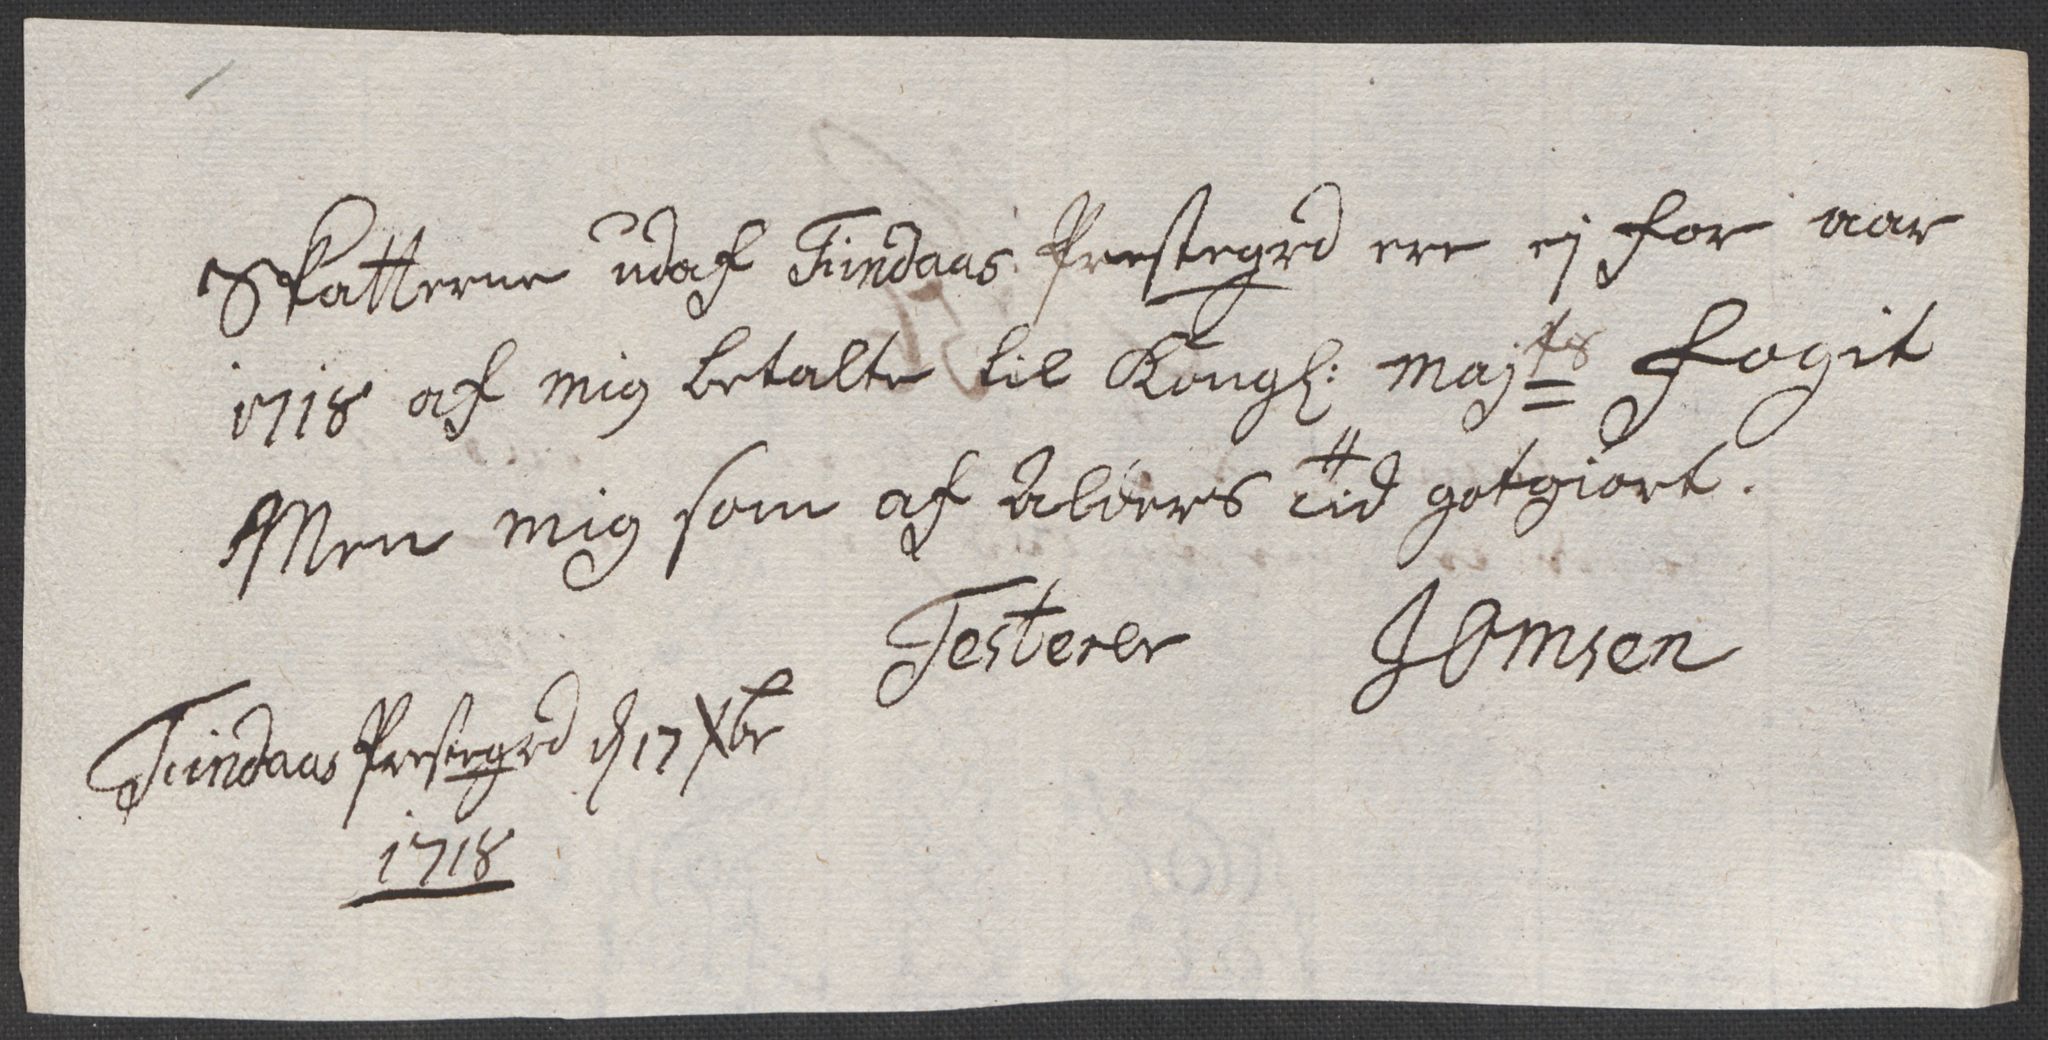 Skatterne udaf Tiindaas Prestegrd ere ej for aar
1718 af mig betalte til Kongl: Majts Fogit
Men mig som af Alders tiid gotgiort.
Testerer JOmsen
Tiindaas Prestegrd d 17 Xbr
1718